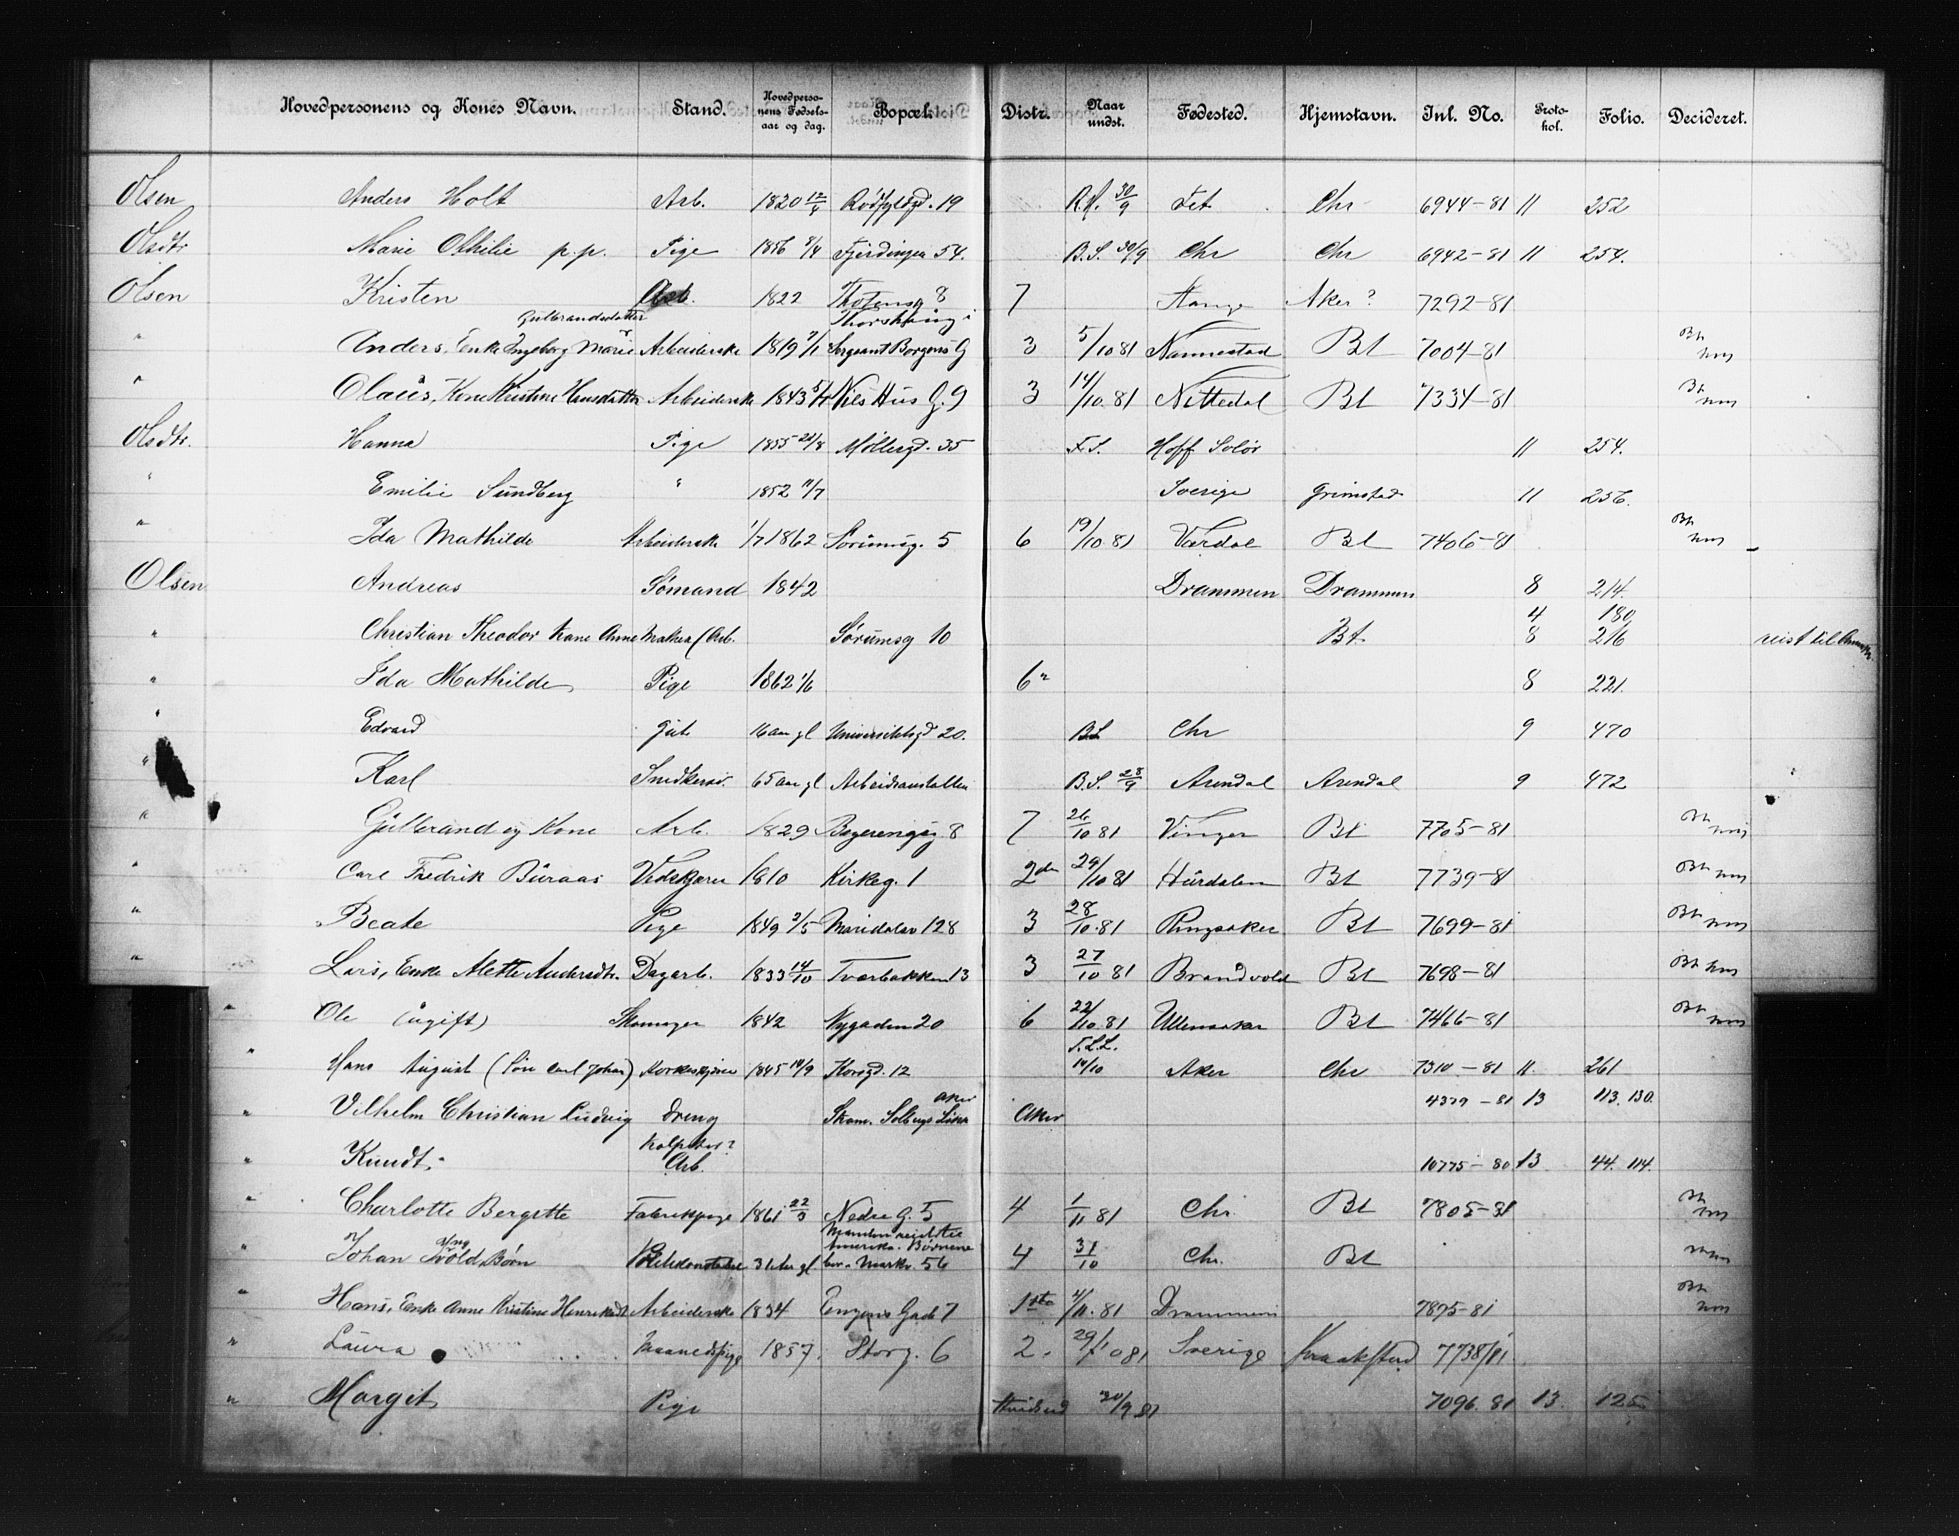 Hovedpersonens og Kones Navn. Stand. Hovedpersonens Fødselsaar og dag. Bopæl. Distr. Naar undst. Fødested. Hjemstavn. Inl. No. Protokol. Folio. Decideret.
Olsen Anders Holt Arb. 1820 12/4 19 30/9 Fet Chr 6944-81 11 252
Olsdtr Marie Othilie p.p. Pige 1856 8/4 Fjerdingen 54. B.S. 30/9 Chr Chr 6942-81 11 254.
Olsen Kristen Arb. 1822 Thotensg 8 7 Stange Aker? 7292-81
Gulbrandsdatter
" Anders, Enke Ingeborg Marie Arbeiderske 1819 Sergeant Borgens G 3 5/10 81 Nannestad Bt 7004-81 Bt
" Olaus, Kone Kristine Hansdatter Arbeiderske 1843 Nils Hus G. 9 3 14/10. 81 Nittedal Bt 7334-81 Bt
Olsdtr. Hanna Pige 1855 21/8 Møllergd. 35 F.S. Hoff Solør 11 254.
" Emilie Sundberg " 1852 11/7 Sverige Grimstad 11 256.
" Ida Mathilde Arbeiderske 1/7 1862 Sørumsg. 5 6 19/10 81 Værdal Bt 7406-81 Bt
Olsen Andreas Sømand 1842 Drammen Drammen 8 214.
4 180
" Christian Theodor Kone Anne Arb. Sørumsg 10 Bt. 8 216 reist til
" Ida Mathilde Pige 1862 1/6 6 8 221.
" Edvard Gut 16 Aar gl Universitetsgd 20. B.S. Chr 9 470
" Karl Snedkersv. 65 Aar gl Arbeidsanstalten B.S. 28/9 Arendal Arendal 9 472
" Gulbrand og Kone Arb. 1829 8 7 26/10 81 Vinger Bt 7705-81 Bt
" Carl Fredrik Buraas Vedskjærer 1810 Kirkeg. 1 2den 29/10 81 Hurdalen Bt 7739-81 Bt
" Beate Pige 1849 2/5 Maridalsv 128 3 28/10. 81 Ringsaker Bt 7699-81 Bt
" Lars, Enke Alette Andersdtr. Dagarb. 1833 14/10 Tværbakken 13 3 27/10 81 Brandvold Bt 7698-81 Bt
" Ole (ugift) Skomager 1842 Nygaden 20 6 22/10. 81 Ullensaker Bt 7466-81 Bt
" Hans August (Søn Carl Johan) Korkeskjærer 1845 10/9 Korsgd. 12 10/10 Aker Chr 7310-81 11. 261
" Vilhelm Christian Ludvig Dreng Skom. Solbergs Aker Aker 4379-81 13 113. 130.
" Knudt. Arb. 10775-80 13 44. 114.
" Charlotte Bergitte Fabrikpige 1861 22/3 Nedre G. 5 4 1/11 81 Chr. Bt 7805-81 Bt
Manden reist til
Amerika. Børnene
" Johan Børn 31 Aar gl bor. Markv. 56 4 31/10 Chr. Bt
" Hans, Enke Anne Kristine Henriksdt Arbeiderske 1834 Gade 7 1ste 4/11. 81 Drammen 7875-81 Bt
" Laura Maanedspige 1857, Storg. 6 2. 29/10 81 Sverige Kraakstad 7738/81.
" Margit Pige 30/9 81 7096. 81 13. 125